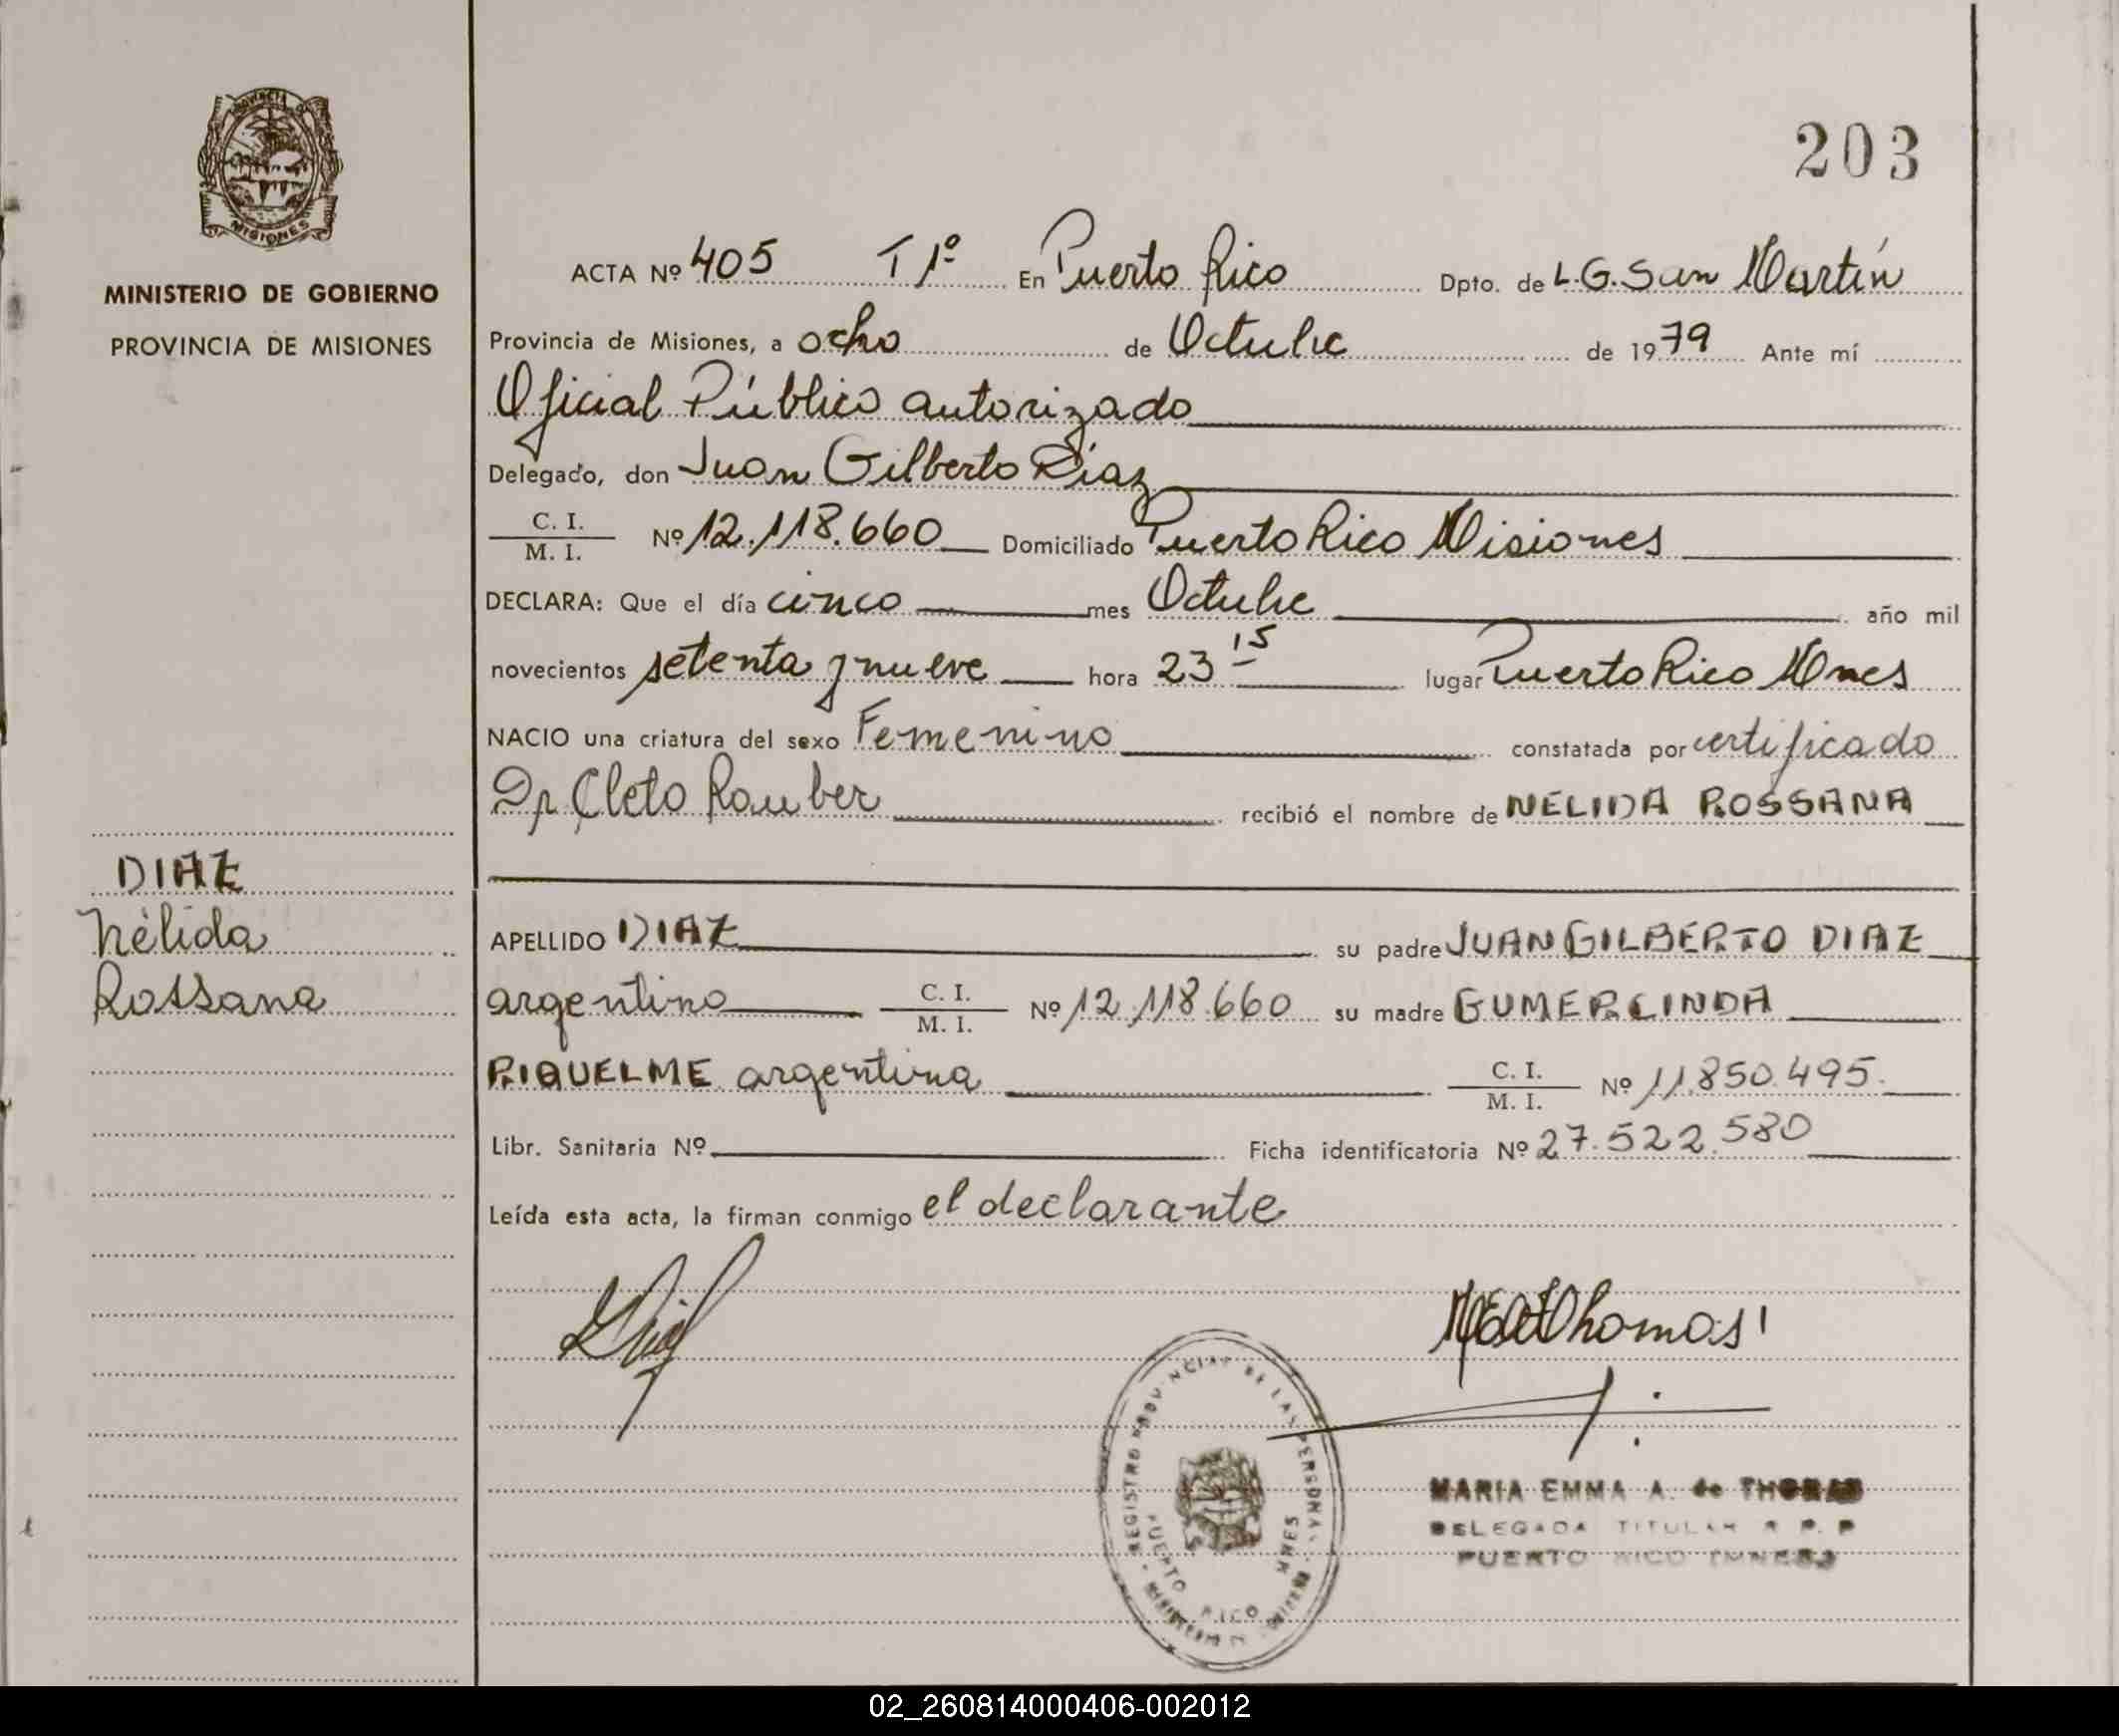 PROVINCIA DE
MISIONES
MINISTERIO DE GOBIERNO
PROVINCIA DE MISIONES
203
ACTA Nº 405 T 1º En Puerto Rico Dpto. de L.G. San Martín
Provincia de Misiones, a ocho de Octubre de 1979 Ante mí
Oficial Público autorizado
Delegado, don Juan Gilberto Diaz
C. I. / M. I. Nº 12.118.660 Domiciliado Puerto Rico Misiones
DECLARA: Que el día cinco mes Octubre año mil
novecientos setenta y nueve hora 23 15 lugar Puerto Rico Mnes
NACIO una criatura del sexo Femenino constatada por certificado
Dr Cleto Rauber recibió el nombre de NELIDA ROSSANA
DIAZ
Nélida
Rossana
APELLIDO DIAZ su padre JUAN GILBERTO DIAZ
argentino C. I. / M. I. Nº 12.118.660 su madre GUMERCINDA
RIQUELME argentina C. I. / M. I. Nº 11.850.495.
Libr. Sanitaria Nº Ficha identificatoria Nº 27.522.580
Leída esta acta, la firman conmigo el declarante
REGISTRO PROVINCIAL DE LAS PERSONAS
PUERTO RICO MNES
MARIA EMMA A. de THOMAS
DELEGADA TITULAR R. P. P
PUERTO RICO (MNES)
02_260814000406-002012